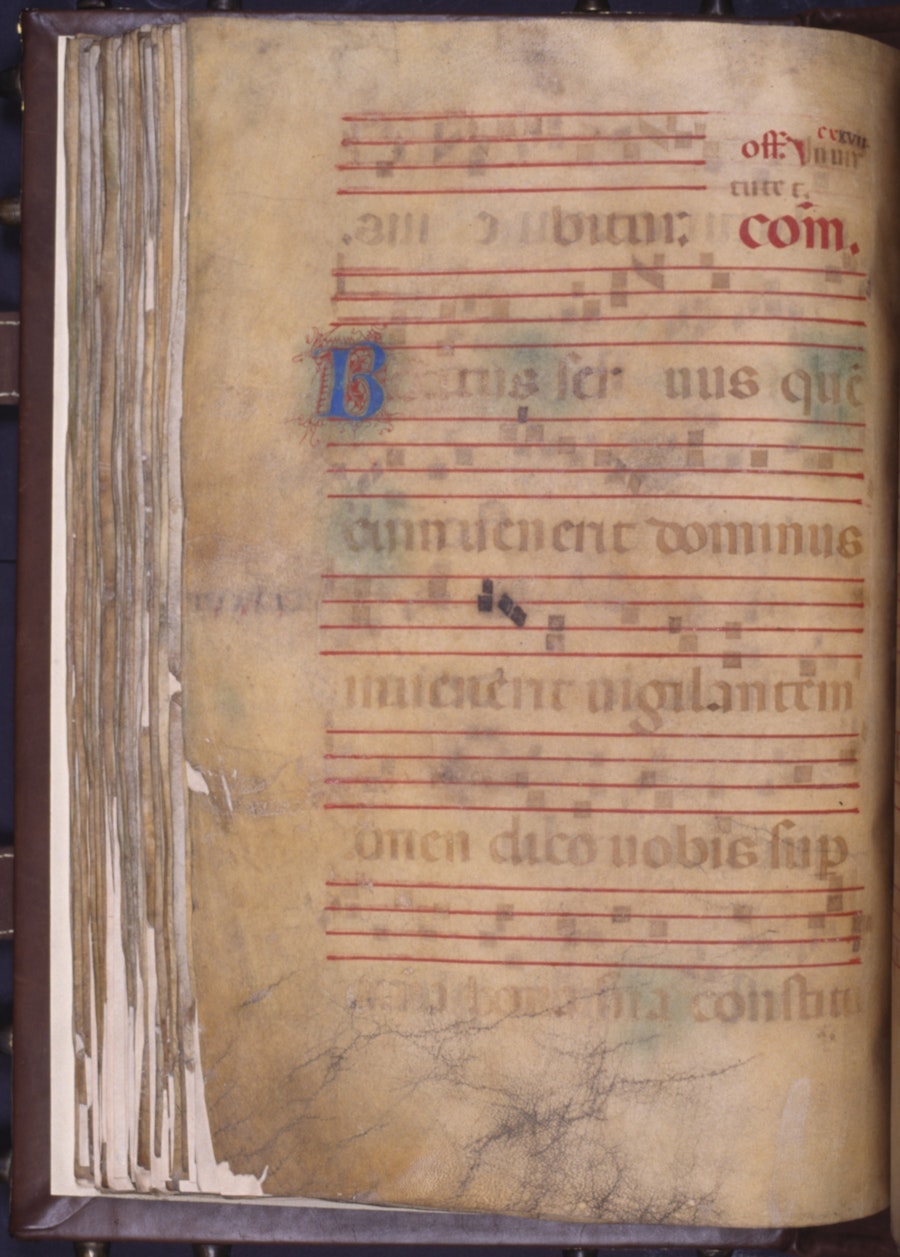 off. cxxvii
tute t.
bitur. com.
Beatus ser uus quē
cum uenerit dominus
inuenerit uigilantem
amen dico uobis sup
bona sua constitu